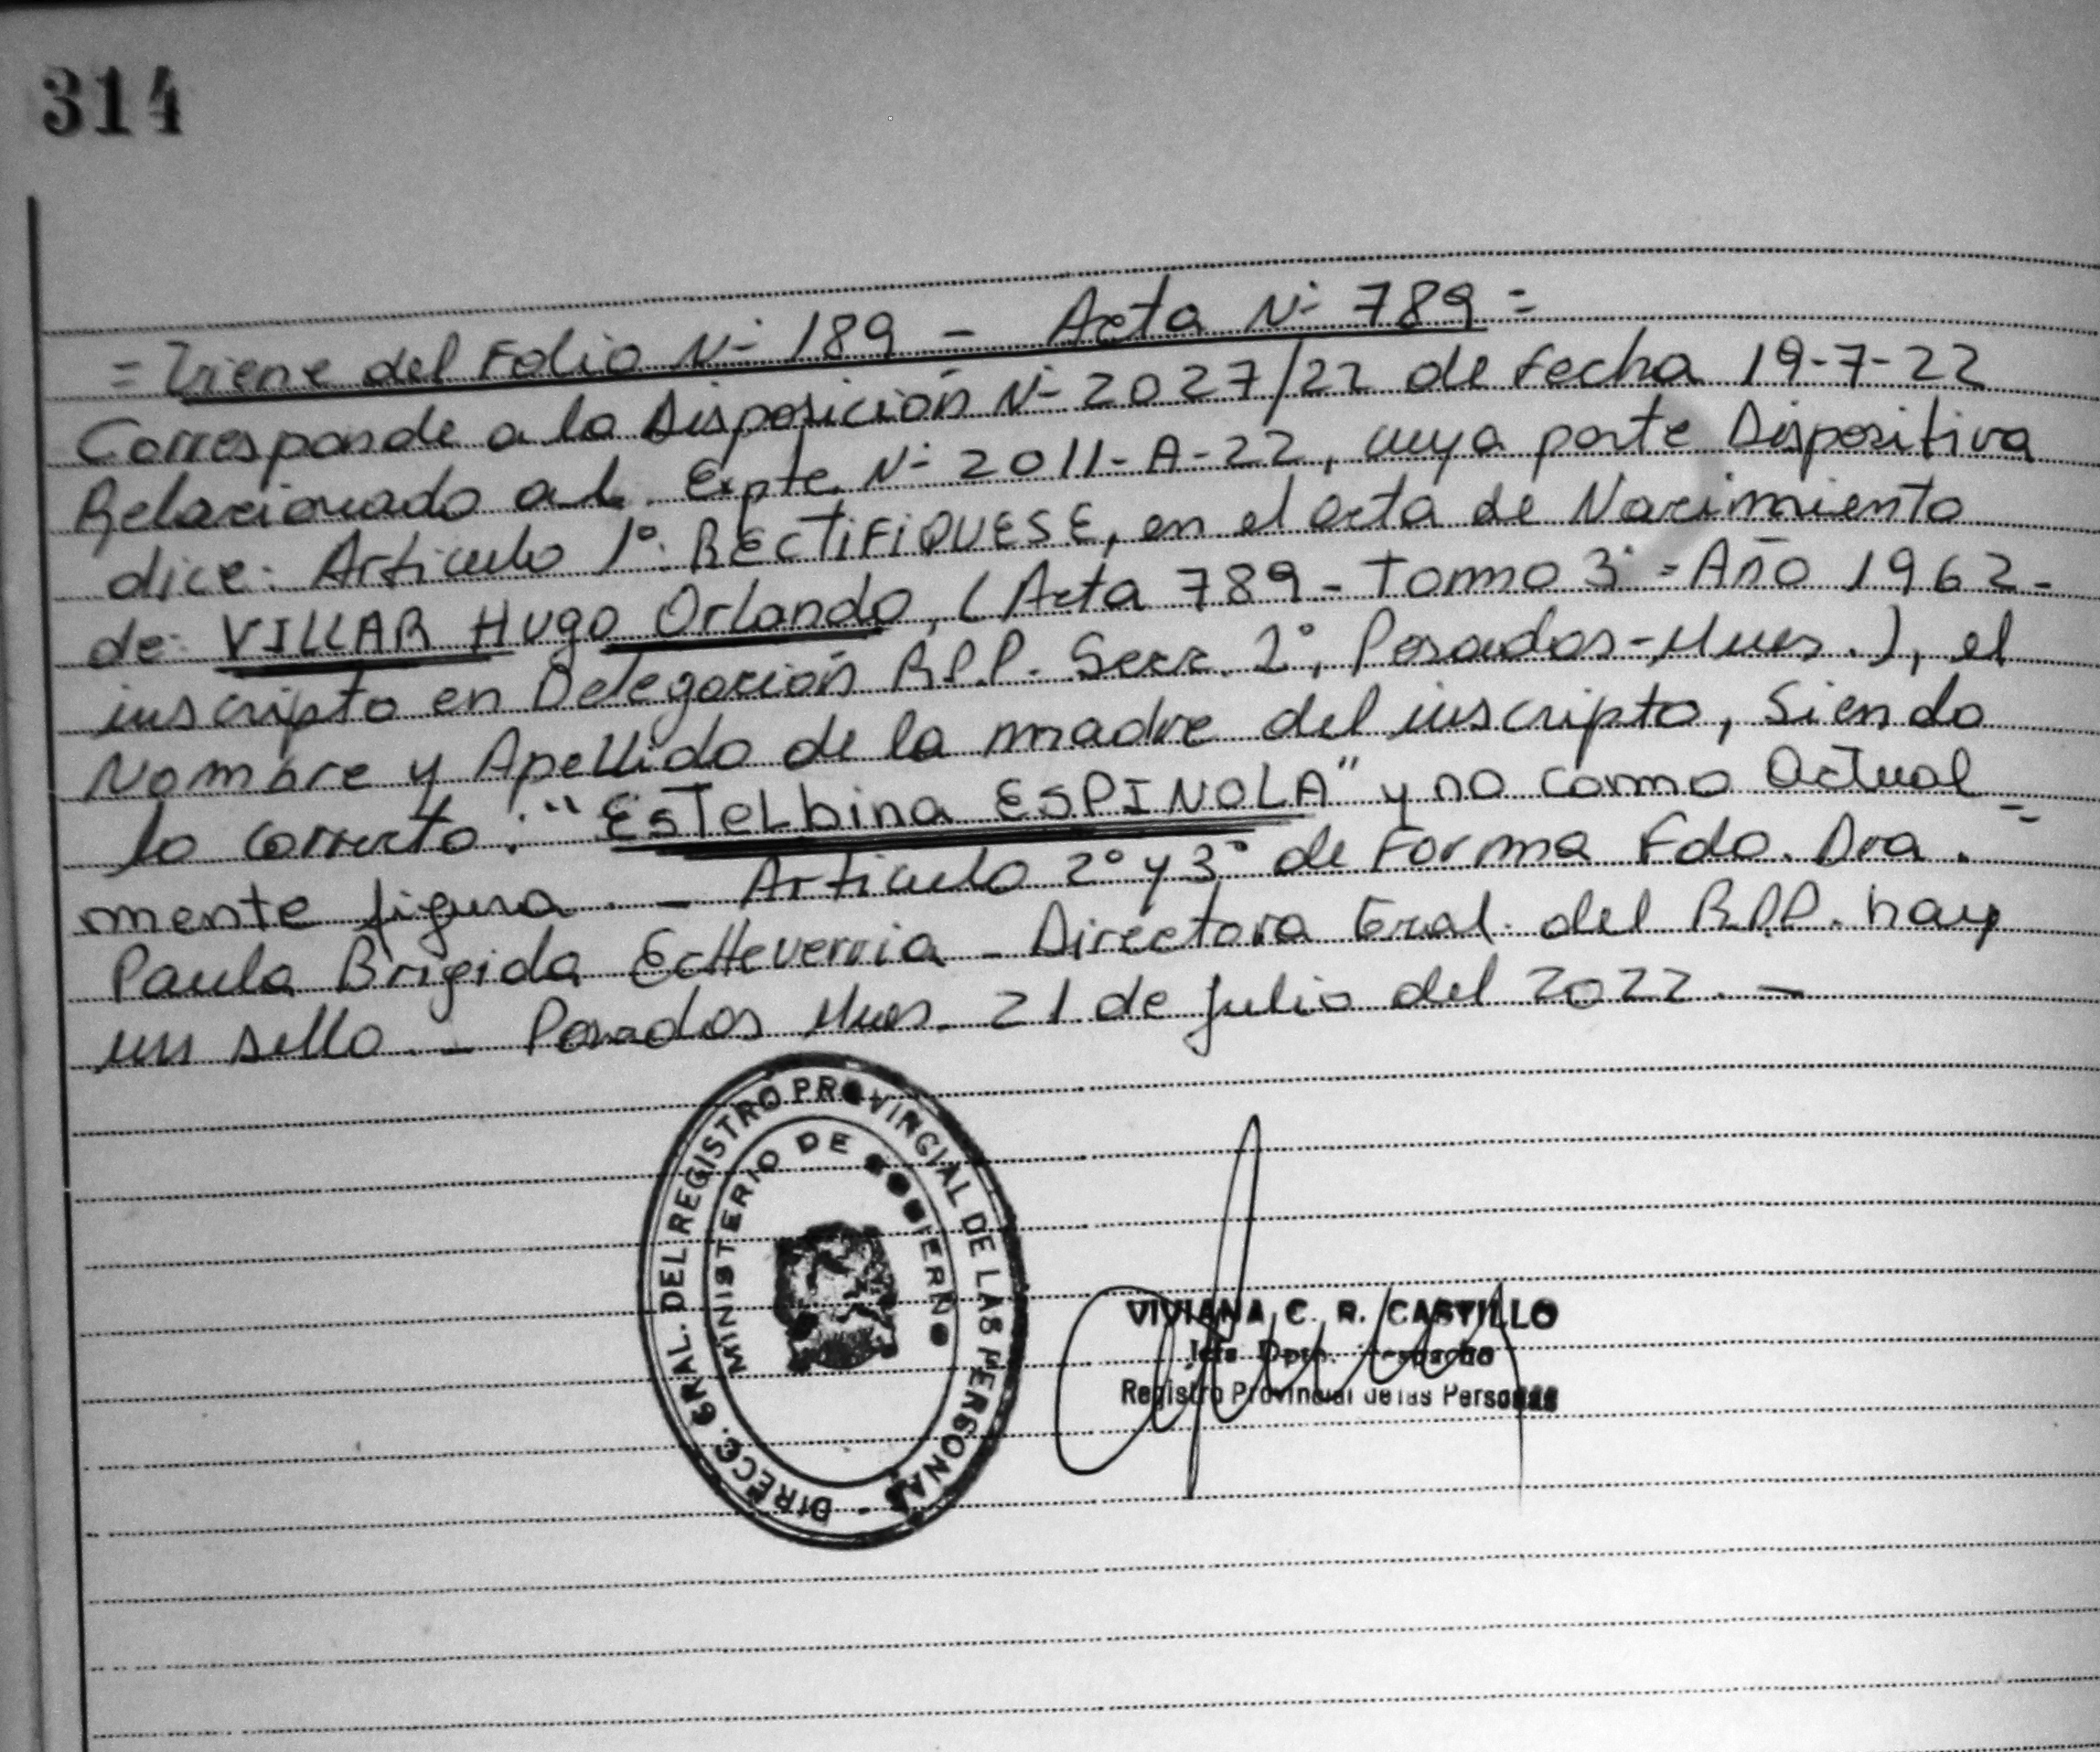 314
= Viene del Folio Nº 189 - Acta Nº 789 =
Corresponde a la Disposición Nº 2027/22 de fecha 19-7-22
Relacionado al Expte Nº 2011-A-22, cuya parte Dispositiva
dice: Articulo 1º: RECTIFIQUESE, en el acta de Nacimiento
de: VILLAR Hugo Orlando, (Acta 789 - Tomo 3º - Año 1962 -
inscripto en Delegación R.P.P. Secc. 2º, Posadas - Mnes.), el
Nombre y Apellido de la madre del inscripto, Siendo
lo correcto: "EsTeLbina ESPINOLA" y no como Actual=
mente figura. - Articulo 2º y 3º de Forma Fdo. Dra.
Paula Brigida Echeverria - Directora Gral. del R.P.P. hay
un sello. - Posadas Mnes. 21 de julio del 2022. -
DIRECC. GRAL. DEL REGISTRO PROVINCIAL DE LAS PERSONAS -
MINISTERIO DE GOBIERNO
VIVIANA C. R. CASTILLO
Jefa Dpto. Despacho
Registro Provincial de las Personas